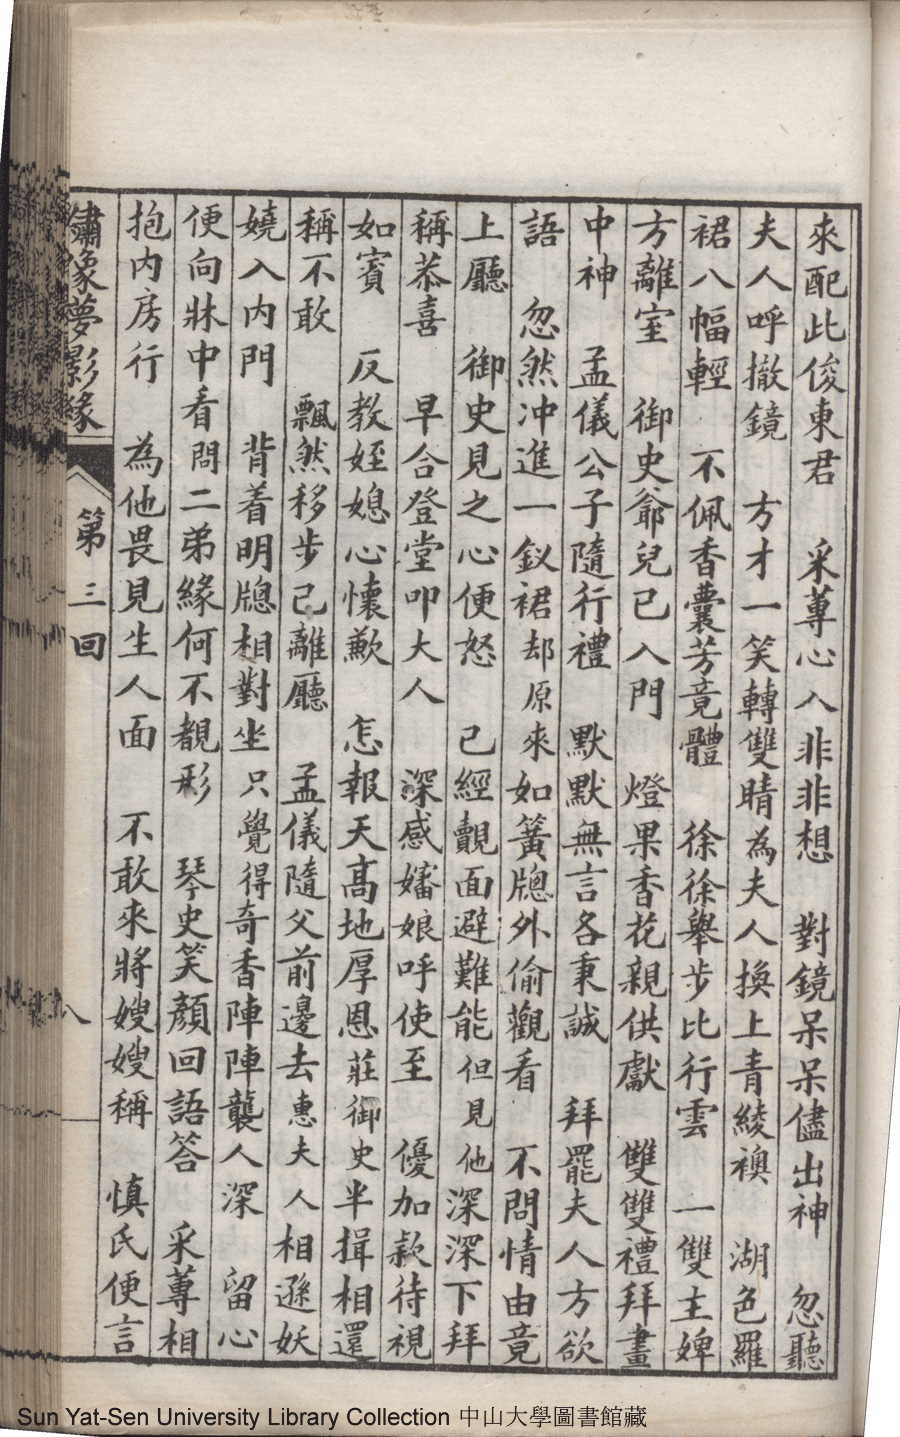 來配此俊東君　采蓴心入非非想　對鏡呆呆儘出神　忽聽
夫人呼撤鏡　方才一笑轉雙睛為夫人換上青綾襖　湖色羅
裙八幅輕　不佩香囊芳竟體　徐徐舉步比行雲　一雙主婢
方離室　御史爺兒已入門　燈果香花親供獻　雙雙禮拜畫
中神　孟儀公子隨行禮　默默無言各秉誠　拜罷夫人方欲
語　忽然冲進一釵裙却原來如簧牕外偷觀看　不問情由竟
上廳　御史見之心便怒　已經覿面避難能但見他深深下拜
稱恭喜　早合登堂叩大人　深感嬸娘呼使至　優加款待視
如賓　反教姪媳心懷歉　怎報天高地厚恩莊御史半揖相還
稱不敢　飄然移步已離廳　孟儀隨父前邊去惠夫人相遜妖
嬈入内門　背着明牕相對坐只覺得奇香陣陣襲人深　留心
便向牀中看問二弟緣何不覩形　琴史笑顏回語答　采蓴相
抱内房行　為他畏見生人面　不敢來將嫂嫂稱　慎氏便言
繡像夢影緣　第三回　八
Sun Yat-Sen University Library Collection 中山大學圖書館藏